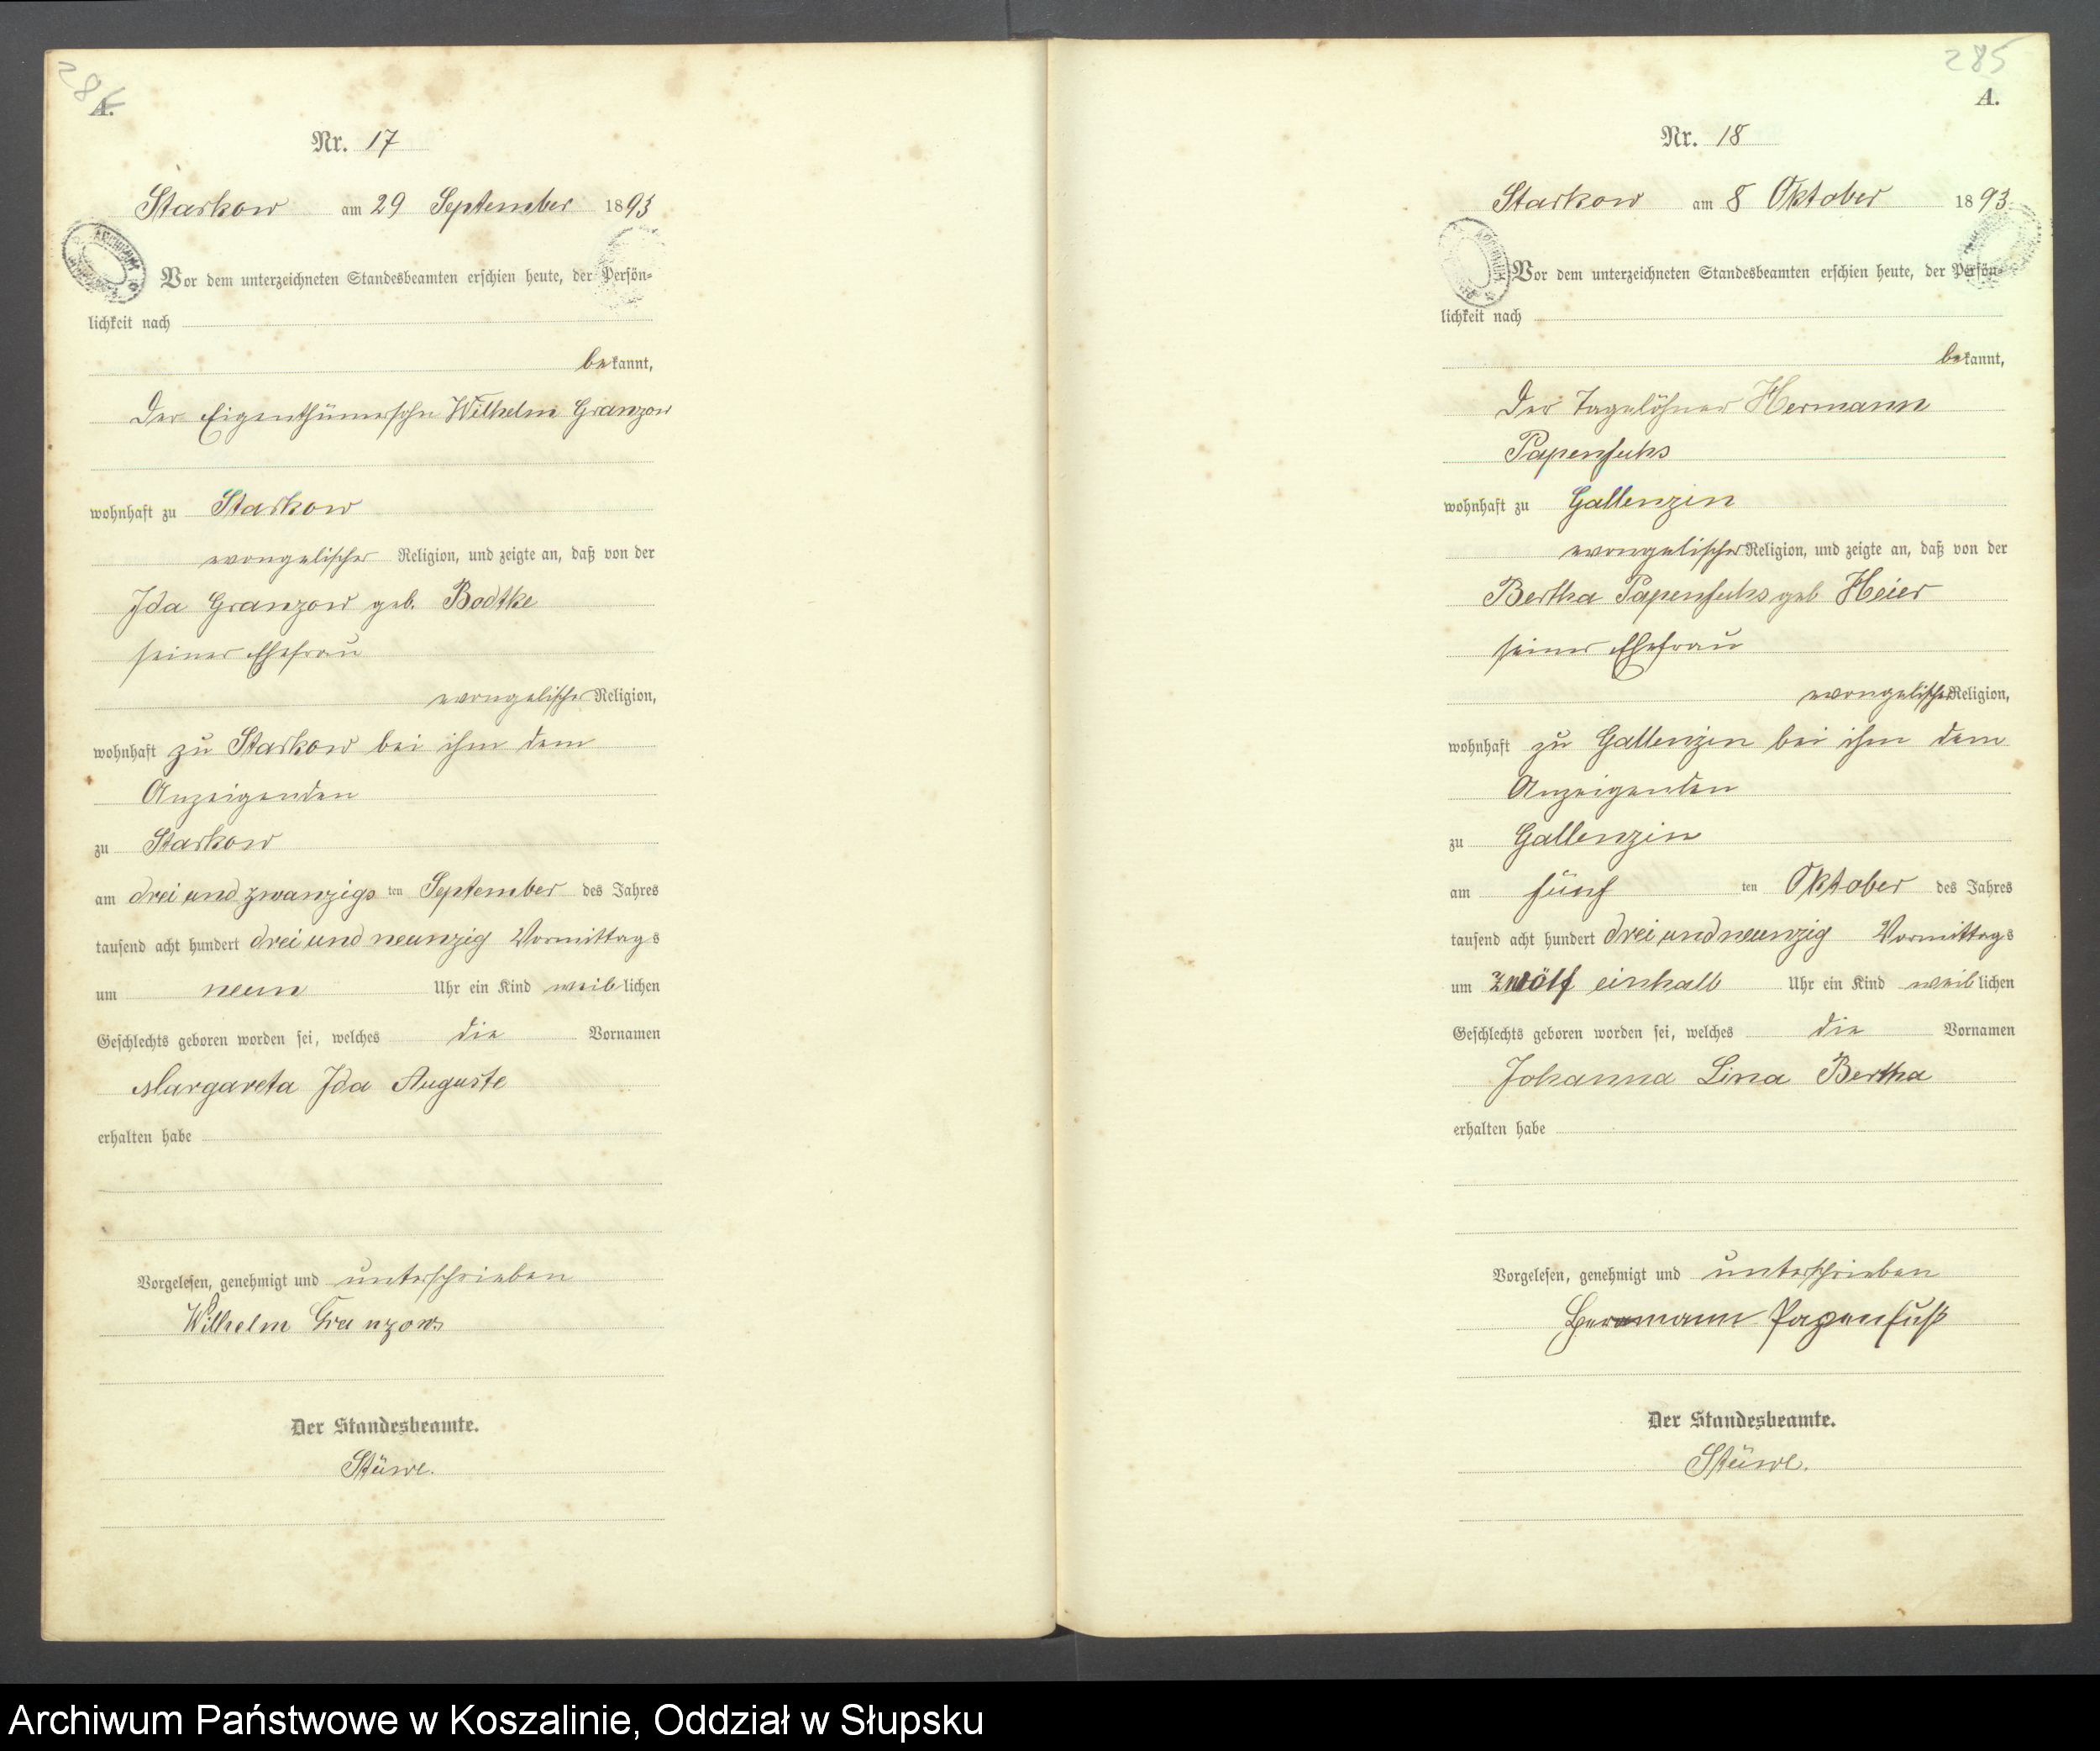 284
A.
Nr. 17
Starkow am 29 September 1893
Vor dem unterzeichneten Standesbeamten erschien heute, der Persön-
lichkeit nach
bekannt,
der Eigenthümersohn Wilhelm Granzow
wohnhaft zu Starkow
evangelischer Religion, und zeigte an, daß von der
Ida Granzow geb. Bodtke
seiner Ehefrau
evangelischer Religion,
wohnhaft zu Starkow bei ihm dem
Anzeigenden
zu Starkow
am drei und zwanzigs ten September des Jahres
tausend acht hundert drei und neunzig Vormittags
um neun Uhr ein Kind weiblichen
Geschlechts geboren worden sei, welches die Vornamen
Margareta Ida Auguste
erhalten habe
Vorgelesen, genehmigt und unterschrieben
Wilhelm Granzow
Der Standesbeamte.
Stüwe.
285
A.
Nr. 18
Starkow am 8 Oktober 1893
Vor dem unterzeichneten Standesbeamten erschien heute, der Persön-
lichkeit nach
bekannt,
der Tagelöhner Hermann
Papenfuhs
wohnhaft zu Gallenzin
evangelischer Religion, und zeigte an, daß von der
Bertha Papenfuhs geb Heier
seiner Ehefrau
evangelischer Religion,
wohnhaft zu Gallenzin bei ihm dem
Anzeigenden
zu Gallenzin
am fünf ten Oktober des Jahres
tausend acht hundert drei und neunzig Vormittags
um zwölf einhalb Uhr ein Kind weiblichen
Geschlechts geboren worden sei, welches die Vornamen
Johanna Lina Bertha
erhalten habe
Vorgelesen, genehmigt und unterschrieben
Hermann Papenfuß
Der Standesbeamte.
Stüwe.
Archiwum Państwowe w Koszalinie, Oddział w Słupsku